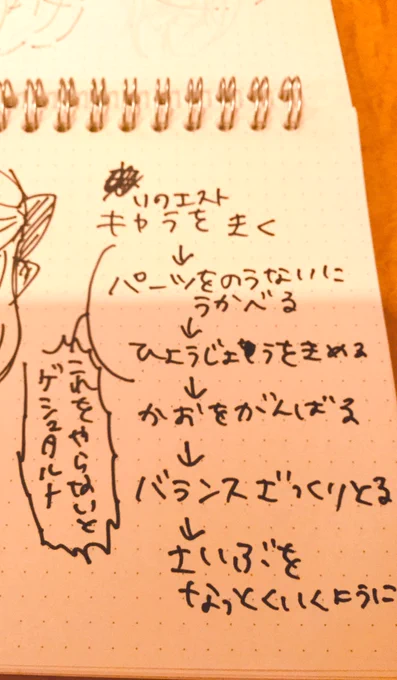 リクエスト
キャラをきく
↓
パーツをのうないに
うかべる
↓
ひょうじょうをきめる
↓
かおをがんばる
↓
バランスざっくりとる
↓
さいぶを
なっとくいくように
これをやらないと
ゲシュタルト